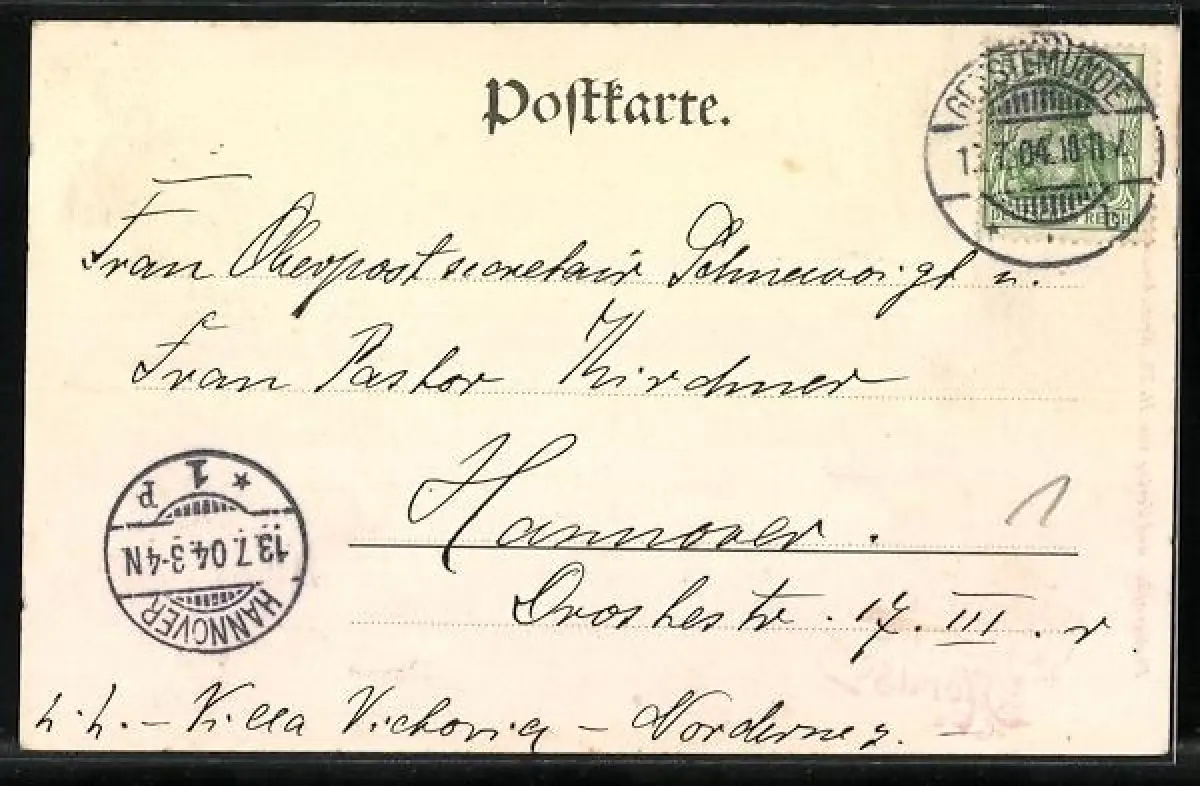 Postkarte.
GEESTEMÜNDE
13.7.04. 10-11 V
REICH
Frau Oberpostsecretair Schneevoigt u.
Frau Pastor Kirchner
Hannover.
1
Drostestr. 17. III. r.
* 1 p
13.7.04. 3-4 N
HANNOVER
Villa Victoria – Norderney. –